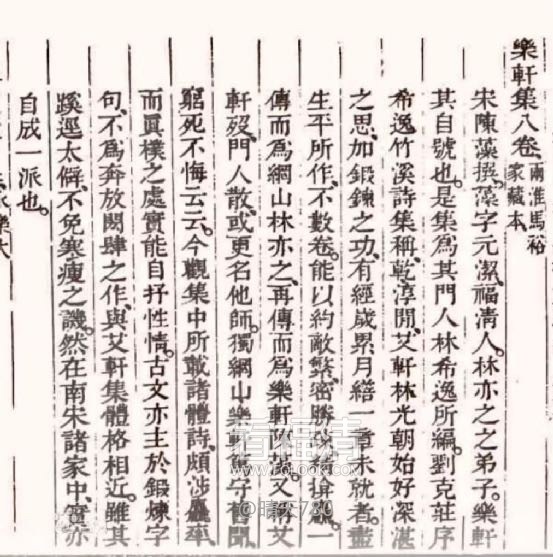 樂軒集八卷 兩淮馬裕家藏本
宋陳藻撰。藻字元潔、福清人。林亦之之弟子。樂軒
其自號也。是集爲其門人林希逸所編。劉克莊序
希逸竹溪詩集稱、乾淳間、艾軒林光朝始好深湛
之思、加鍛鍊之功、有經歲累月繕一章未就者。盡
生平所作、不數卷。能以約敵繁、密勝疎、精掄麤。一
傳而爲網山林亦之、再傳而爲樂軒陳藻。又稱艾
軒歿、門人散、或更名他師。獨網山樂軒篤守舊聞、
窮死不悔云云。今觀集中所載諸體詩、頗涉麤率、
而眞樸之處實能自抒性情。古文亦主於鍛煉字
句、不爲奔放閎肆之作、與艾軒集體格相近。雖其
蹊逕太僻、不免寒瘦之譏。然在南宋諸家中、實亦
自成一派也。
永樂大
看福清
@晴天720